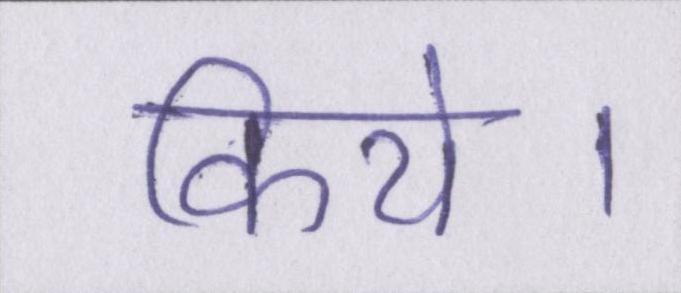 किये।